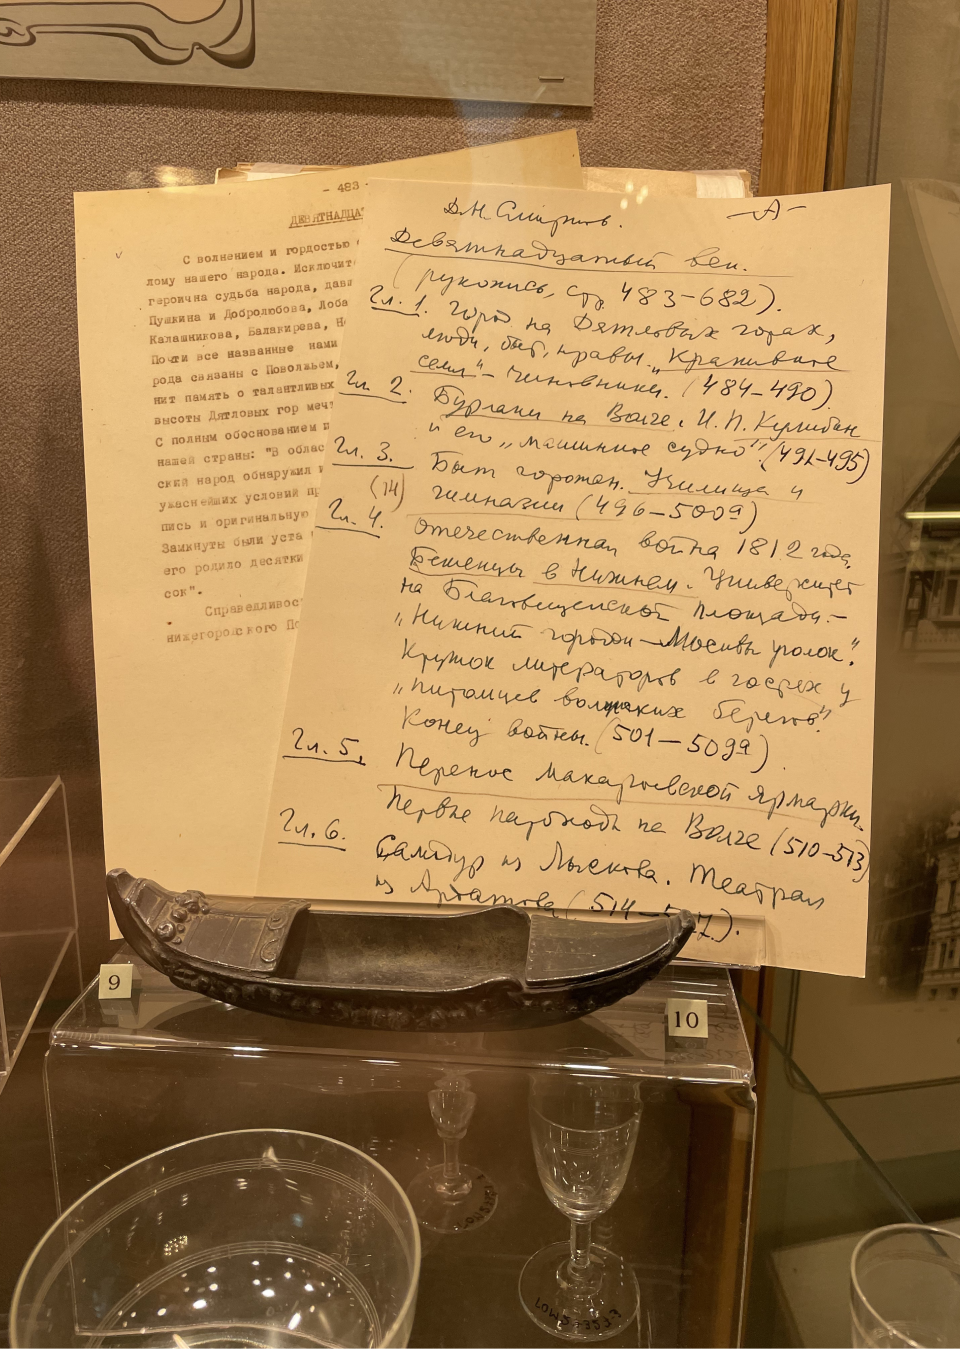 - 483 -
ДЕВЯТНАДЦАТ
С волнением и гордостью
лому нашего народа. Исключит
героична судьба народа, дав
Пушкина и Добролюбова, Лоба
Калашникова, Балакирева, Н
Почти все названные нами
рода связаны с Поволжьем,
нит память о талантливых
высоты Дятловых гор меч
С полным обоснованием
нашей страны: "В облас
ский народ обнаружил
ужаснейших условий пр
пись и оригинальную
Замкнуты были уста
его родило десятки
сок".
Справедливос
нижегородского По
Д.Н. Смирнов.
-А-
Девятнадцатый век.
(рукопись, стр. 483-682).
Гл. 1. Город на Дятловых горах,
люди, быт, нравы. „Крапивное
семя" - чиновники. (484-490)
Гл. 2. Бурлаки на Волге. И.П. Кулибин
и его „машинное судно". (491-495)
Гл. 3. Быт горожан. Училища и
(14) гимназии (496-500а)
Гл. 4. Отечественная война 1812 года.
Беженцы в Нижнем. Университет
на Благовещенской площади. -
„Нижний городок - Москвы уголок".
Кружок литераторов в гостях у
„питомцев волжских берегов".
Конец войны. (501-509а)
Гл. 5. Перенос Макарьевской ярмарки.
Первые пароходы на Волге (510-513)
Гл. 6. Самодур из Лыскова. Театрал
из Ардатова (514-
9
10